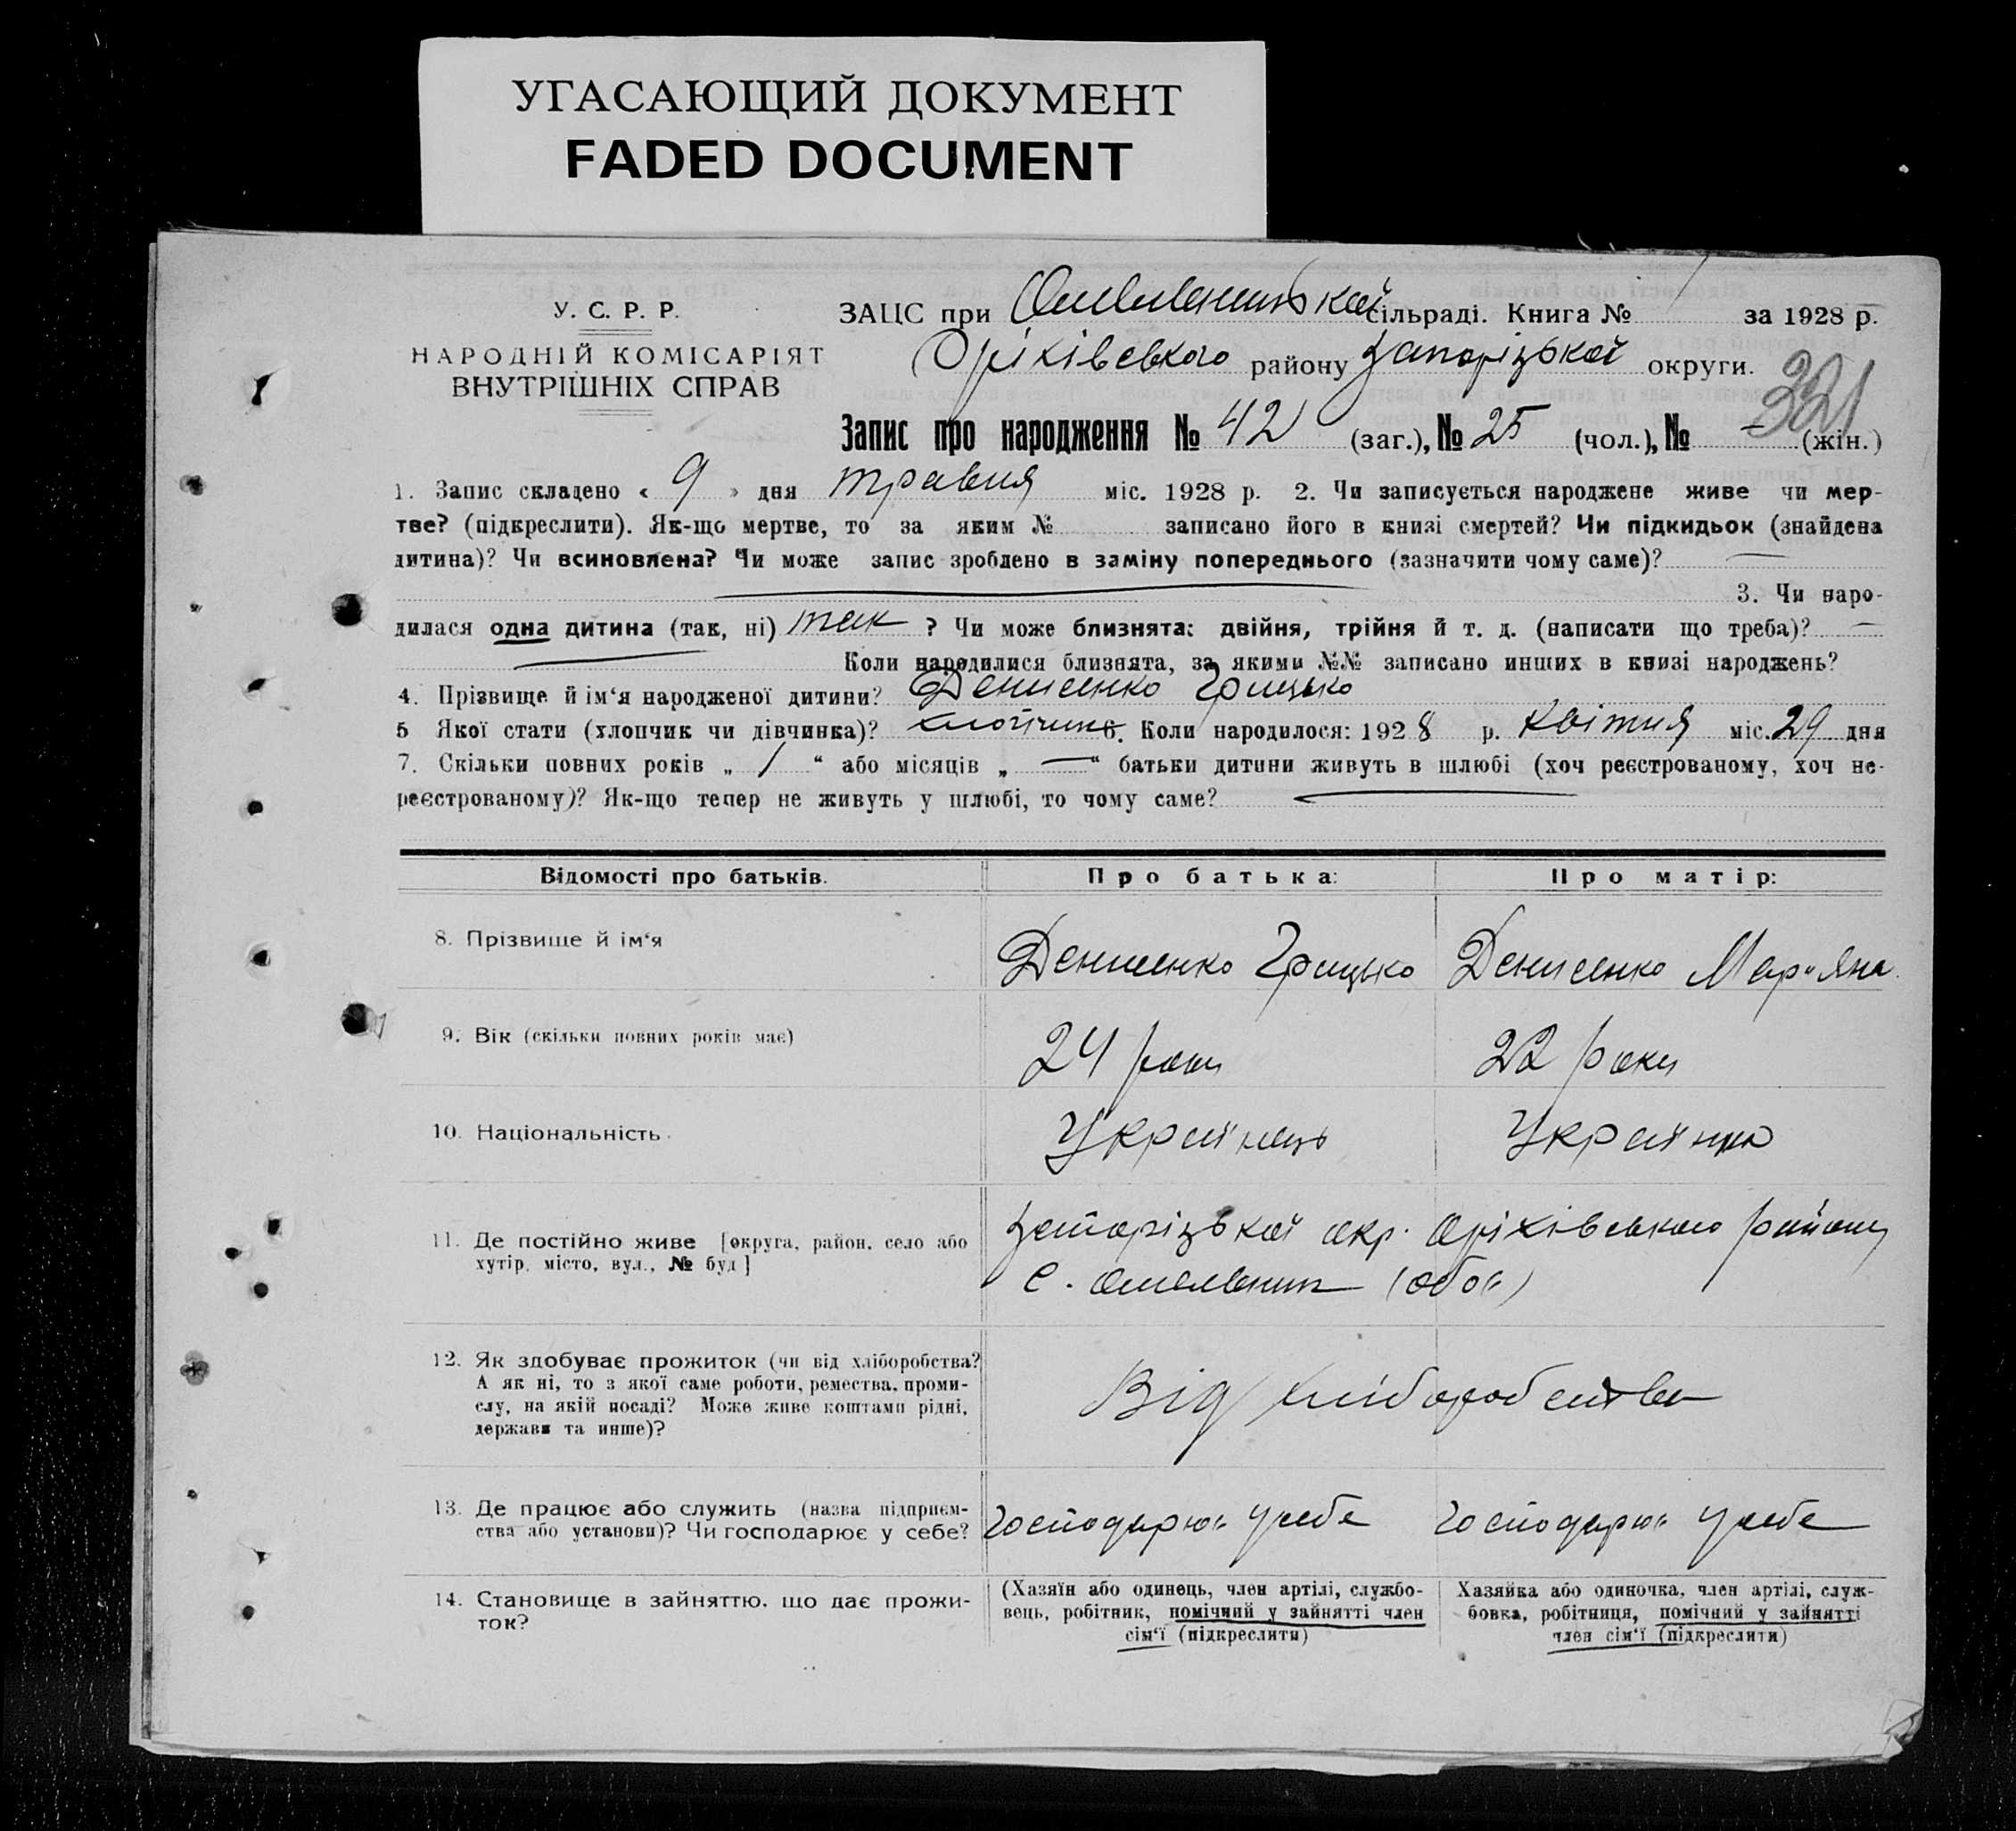 УГАСАЮЩИЙ ДОКУМЕНТ
FADED DOCUMENT
У. С. Р. Р.
НАРОДНІЙ КОМІСАРІЯТ
ВНУТРІШНІХ СПРАВ
ЗАЦС при Омельницької сільраді. Книга № за 1928 р.
Оріхівського району Запорізької округи.
321
Запис про народження № 42 (заг.), № 25 (чол.), № — (жін.)
1. Запис складено « 9 » дня травня міс. 1928 р. 2. Чи записується народжене живе чи мер-
тве? (підкреслити). Як-що мертве, то за яким № записано його в книзі смертей? Чи підкидьок (знайдена
дитина)? Чи всиновлена? Чи може запис зроблено в заміну попереднього (зазначити чому саме)? —
3. Чи наро-
дилася одна дитина (так, ні) так ? Чи може близнята: двійня, трійня й т. д. (написати що треба)? —
Коли народилися близнята, за якими №№ записано инших в книзі народжень?
4. Прізвище й ім‘я народженої дитини? Денисенко Грицько
5 Якої стати (хлопчик чи дівчинка)? хлопчик 6. Коли народилося: 1928 р. Квітня міс. 29 дня
7. Скільки повних років „ 1 “ або місяців „ — “ батьки дитини живуть в шлюбі (хоч реєстрованому, хоч не-
реєстрованому)? Як-що тепер не живуть у шлюбі, то чому саме? —
Відомості про батьків. Про батька: Про матір:
8. Прізвище й ім‘я Денисенко Грицько Денисенко Мар"яна
9. Вік (скільки повних років має) 24 роки 22 роки
10. Національність Українець Українка
11. Де постійно живе [округа, район, село або
хутір, місто, вул., № буд] Запорізької окр. Оріхівського району
с. Омельник (обоє)
12. Як здобуває прожиток (чи від хліборобства?
А як ні, то з якої саме роботи, ремества, проми-
слу, на якій посаді? Може живе коштами рідні,
держави та инше)? Від хліборобства
13. Де працює або служить (назва підприєм-
ства або установи)? Чи господарює у себе? Господарює у себе Господарює у себе
14. Становище в зайняттю, що дає прожи-
ток?
(Хазяїн або одинець, член артілі, службо-
вець, робітник, помічний у зайнятті член
сім‘ї (підкреслити)
Хазяйка або одиночка, член артілі, служ-
бовка, робітниця, помічний у зайнятті
член сім‘ї (підкреслити)